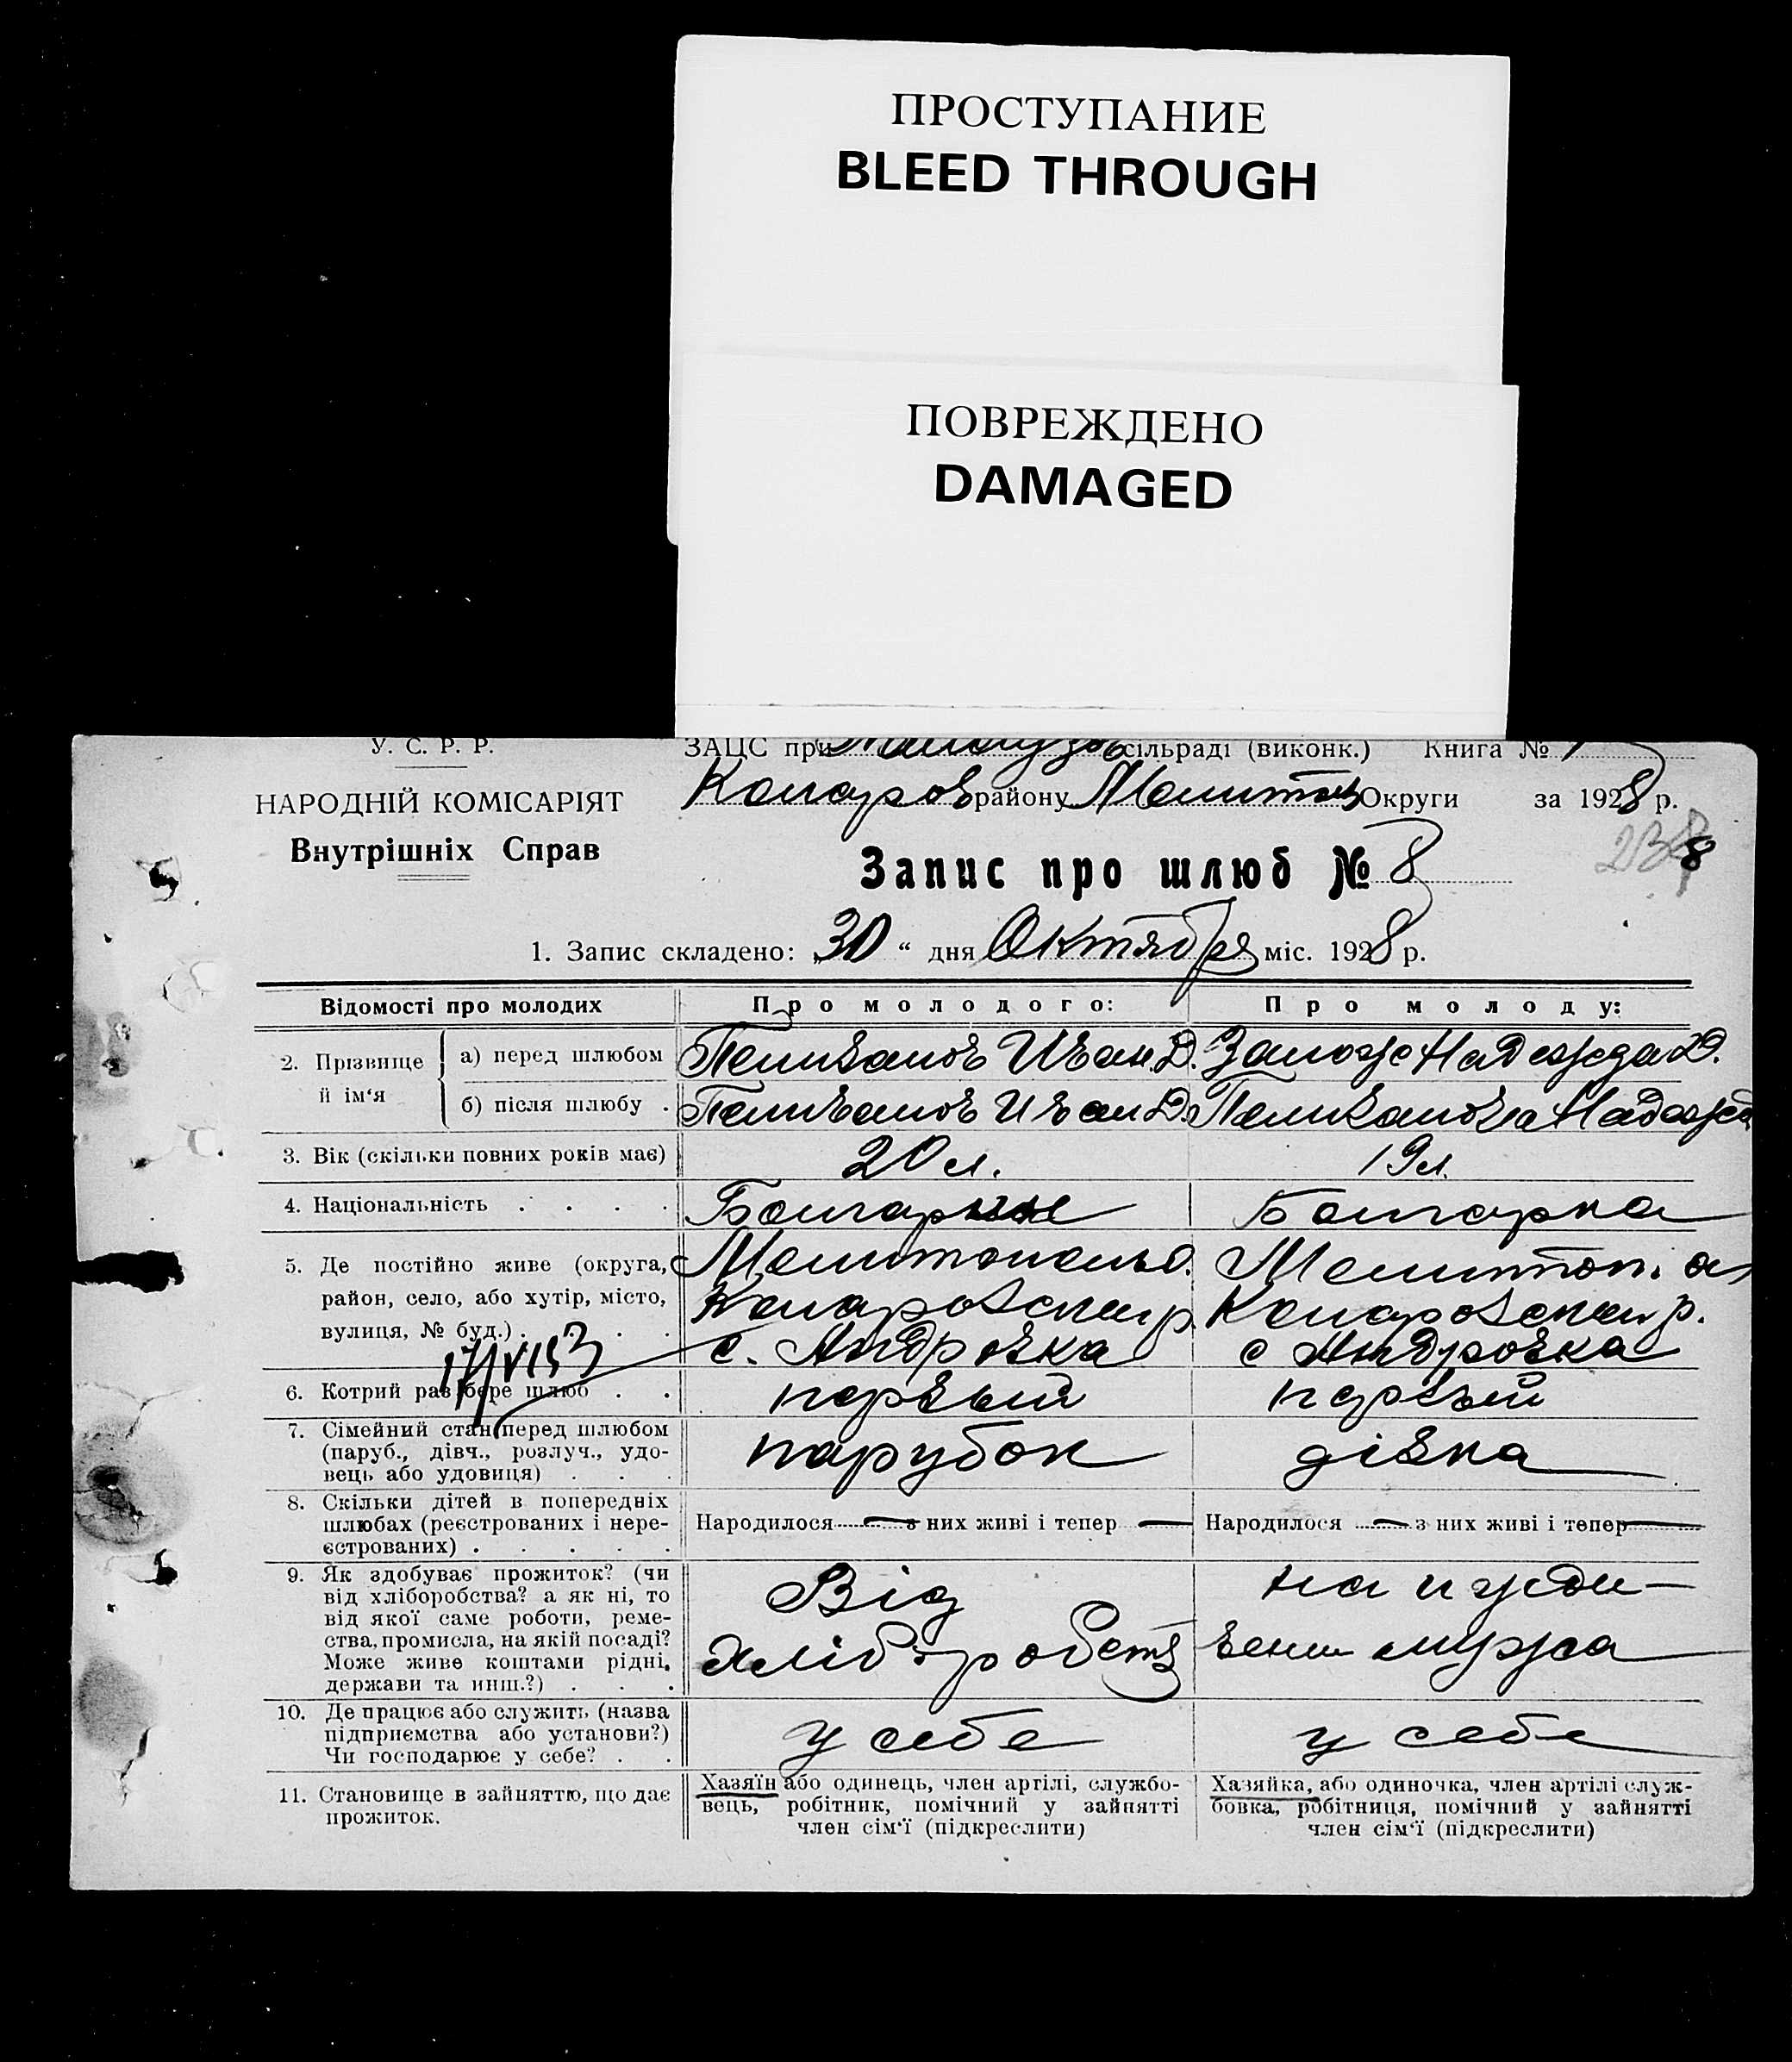 ПРОСТУПАНИЕ
BLEED THROUGH
ПОВРЕЖДЕНО
DAMAGED
У. С. Р. Р.
ЗАЦС при сільраді (виконк.) Книга № 1
НАРОДНІЙ КОМІСАРІЯТ
району Округи за 1928 р.
Внутрішніх Справ
Запис про шлюб № 8
1. Запис складено: „30“ дня Октября міс. 1928 р.
Відомості про молодих
Про молодого:
Про молоду:
2. Прізвище й ім‘я
а) перед шлюбом
Пеливанов Иван Д.
Надежда Д.
б) після шлюбу .
Пеливанов Иван Д.
Пеливанова Надежда
3. Вік (скільки повних років має)
20 л.
19 л.
4. Національність . . . .
Болгарин
Болгарка
5. Де постійно живе (округа,
район, село, або хутір, місто,
вулиця, № буд.) . . . .
Мелитопольо.
р.
с. Андровка
Мелитоп. о
р.
с Андровка
17/VI53
6. Котрий раз бере шлюб . .
первый
первый
7. Сімейний стан перед шлюбом
(паруб., дівч., розлуч., удо-
вець або удовиця) . . .
парубок
дівка
8. Скільки дітей в попередніх
шлюбах (реєстрованих і нере-
єстрованих) . . . . .
Народилося — з них живі і тепер —
Народилося — з них живі і тепер —
9. Як здобуває прожиток? (чи
від хліборобства? а як ні, то
від якої саме роботи, реме-
ства, промисла, на якій посаді?
Може живе коштами рідні,
держави та инш.?) . . .
Від
хліборобств
на ижди-
вении мужа
10. Де працює або служить (назва
підприємства або установи?)
Чи господарює у себе? . .
у себе
у себе
11. Становище в зайняттю, що дає
прожиток.
Хазяїн або одинець, член артілі, службо-
вець, робітник, помічний у зайнятті
член сім‘ї (підкреслити)
Хазяйка, або одиночка, член артілі служ-
бовка, робітниця, помічний у зайнятті
член сім‘ї (підкреслити)